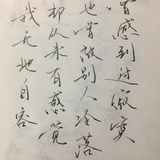 曾感到过寂寞
也曾被别人冷落
却从未有感觉
我无地自容